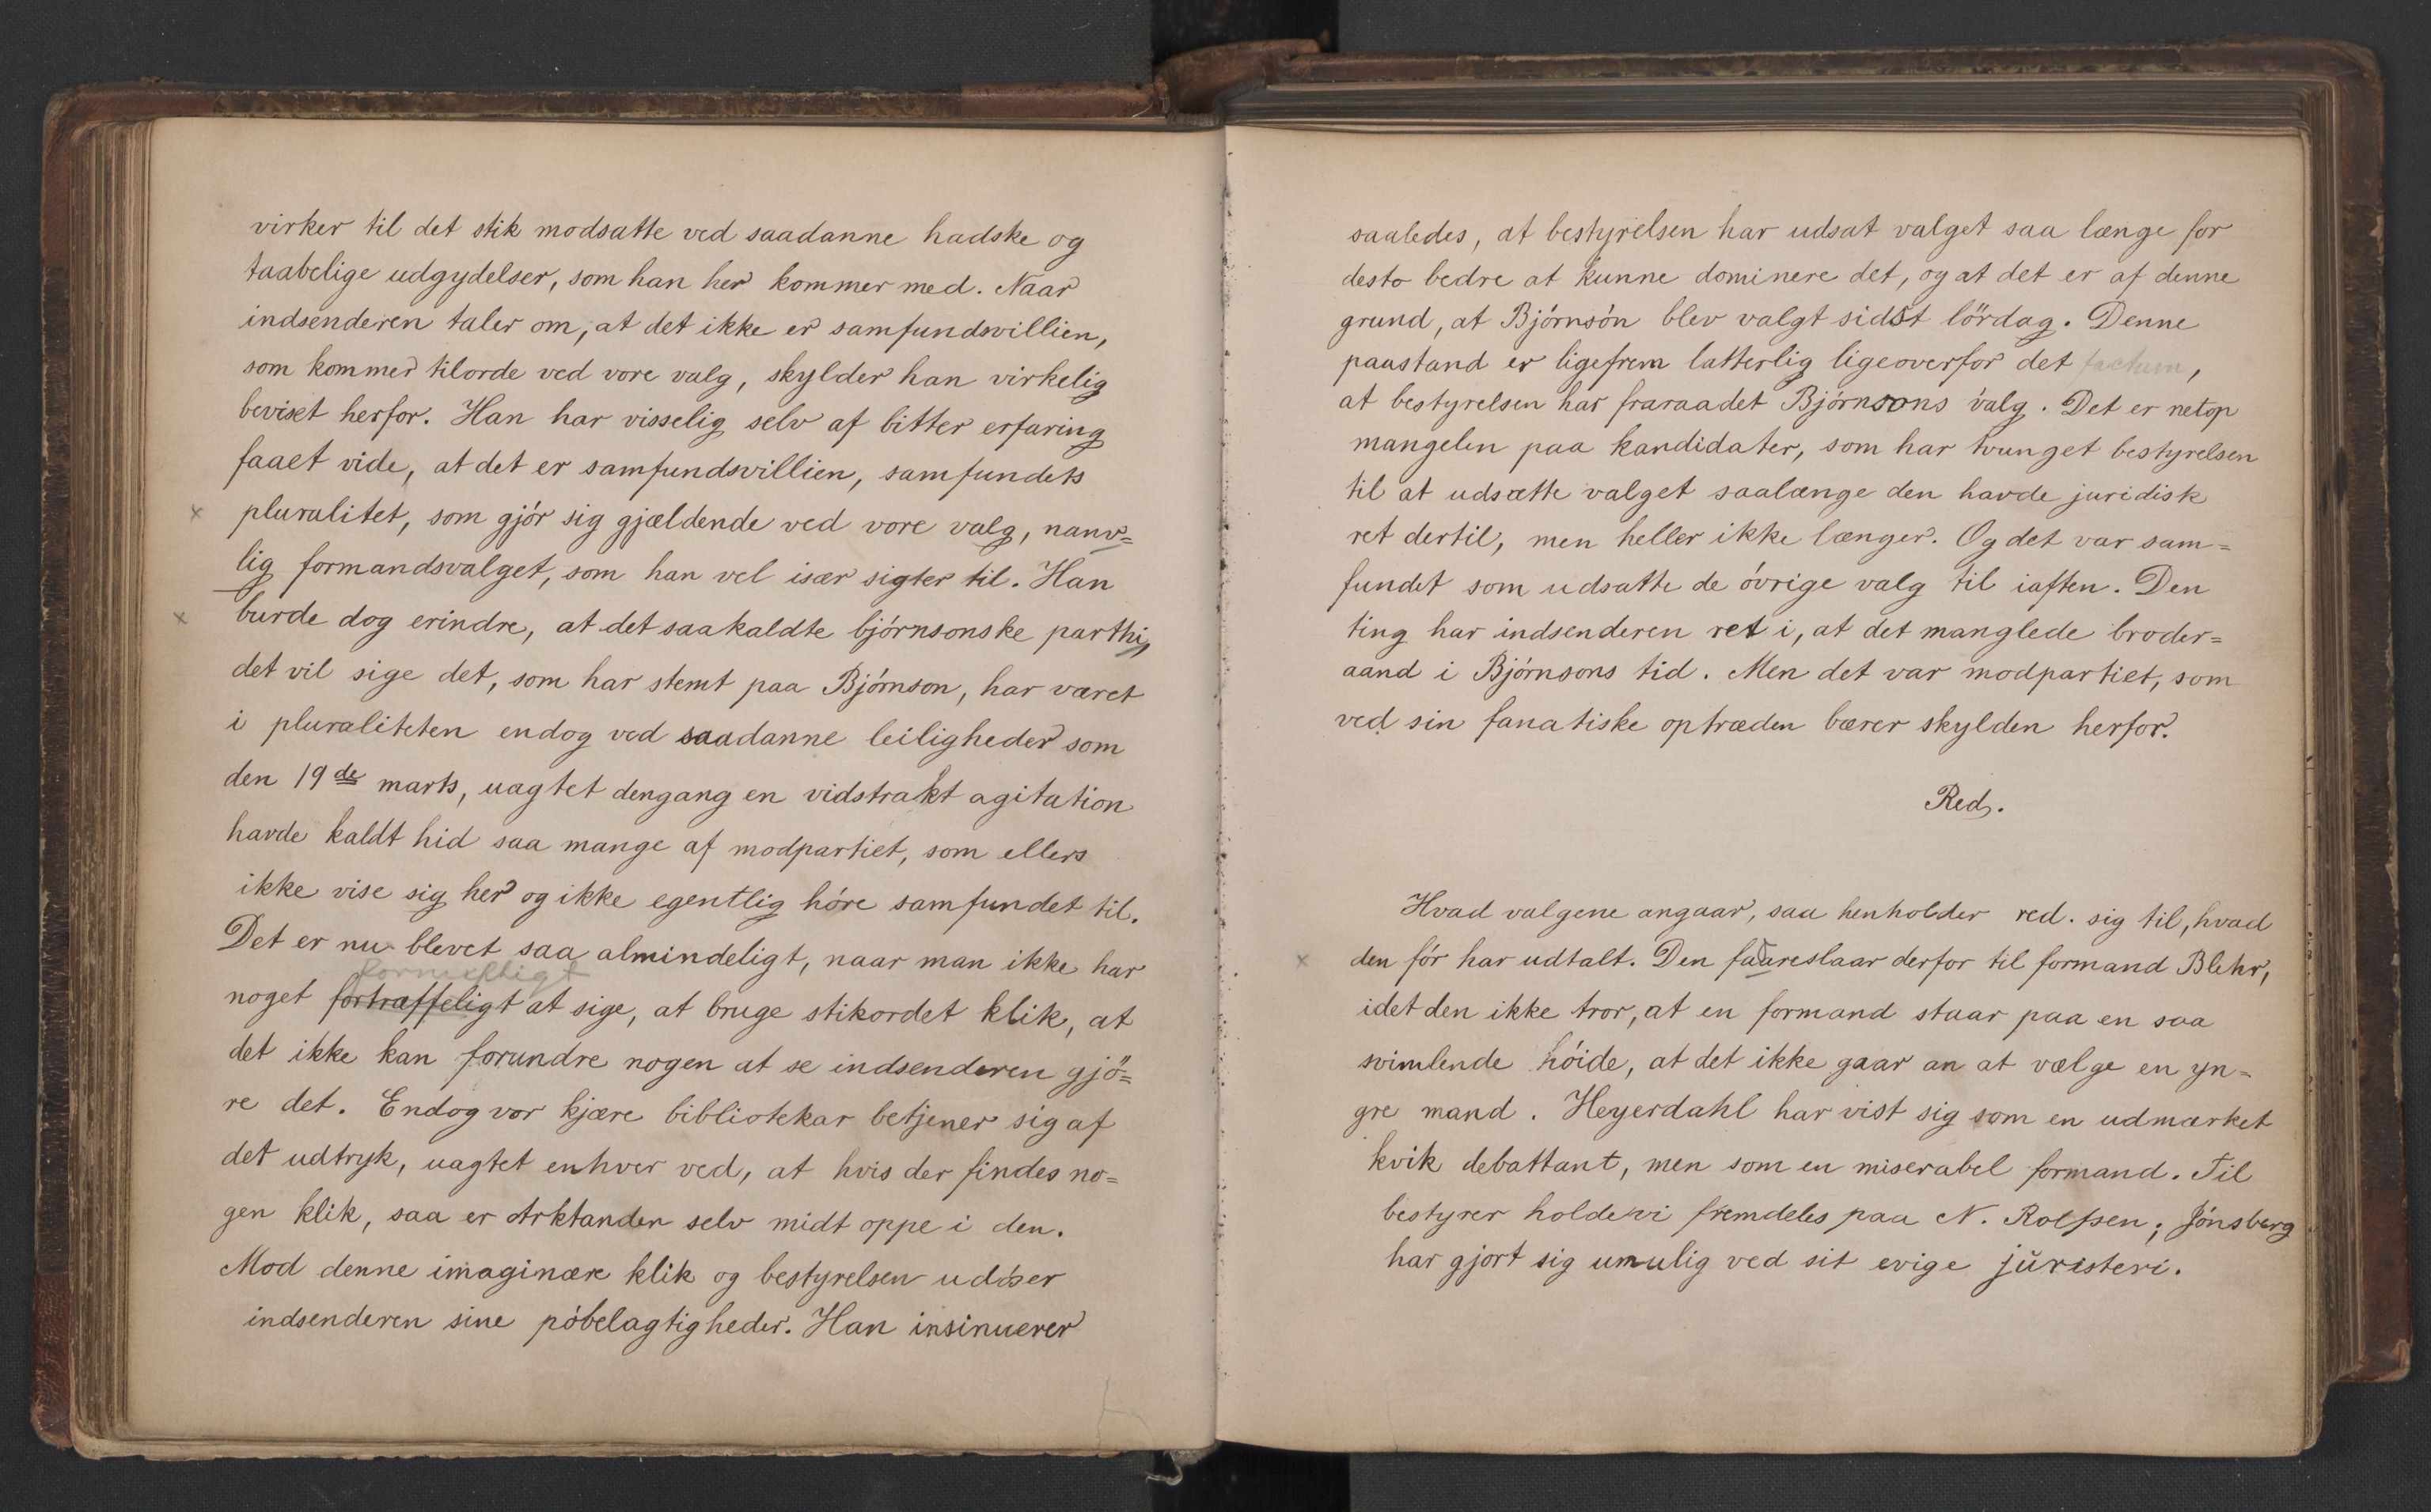 virker til det stik modsatte ved saadanne hadske og
taabelige udgydelser, som han her kommer med. Naar
indsenderen taler om, at det ikke er samfundsvillien,
som kommer tilorde ved vore valg, skylder han virkelig
beviset herfor. Han har visselig selv af bitter erfaring
faaet vide, at det er samfundsvillien, samfundets
x pluralitet, som gjór sig gjældende ved vore valg, nanv=
lig formandsvalget, som han vel især sigter til. Han
x burde dog erindre, at det saakaldte bjórnsonske parthi,
det vil sige det, som har stemt paa Bjórnson, har været
i pluraliteten endog ved saadanne leiligheder som
den 19de marts, uagtet dengang en vidstrakt agitation
havde kaldt hid saa mange af modpartiet, som ellers
ikke vise sig her og ikke egentlig hóre samfundet til.
Det er nu blevet saa almindeligt, naar man ikke har
fornuftigt
noget fortræffeligt at sige, at bruge stikordet klik, at
det ikke kan forundre nogen at se indsenderen gjö=
re det. Endog vor kjære bibliotekar betjener sig af
det udtryk, uagtet enhver ved, at hvis der findes no=
gen klik, saa er Arktander selv midt oppe i den.
Mod denne imaginære klik og bestyrelsen udóser
indsenderen sine póbelagtigheder. Han insinuerer
saaledes, at bestyrelsen har udsat valget saa længe for
desto bedre at kunne dominere det, og at det er af denne
grund, at Bjórnsón blev valgt sidst lördag. Denne
paastand er ligefrem latterlig ligeoverfor det factum,
at bestyrelsen har fraraadet Bjórnsons valg. Det er netop
mangelen paa kandidater, som har tvunget bestyrelsen
til at udsætte valget saalænge den havde juridisk
ret dertil, men heller ikke længer. Og det var sam=
fundet som udsatte de óvrige valg til iaften. Den
ting har indsenderen ret i, at det manglede broder=
aand i Bjórnsons tid. Men det var modpartiet, som
ved sin fanatiske optræden bærer skylden herfor.
Red.
Hvad valgene angaar, saa henholder red. sig til, hvad
x den fór har udtalt. Den faareslaar derfor til formand Blehr,
idet den ikke tror, at en formand staar paa en saa
svimlende hóide, at det ikke gaar an at vælge en yn=
gre mand. Heyerdahl har vist sig som en udmærket
kvik debattant, men som en miserabel formand. Til
bestyrer holder vi fremdeles paa N. Rolfsen; Jónsberg
har gjort sig umulig ved sit evige juristeri.